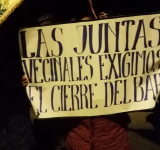 LAS JUNTAS
VECINALES EXIGIMOS
EL CIERRE DEL BAR